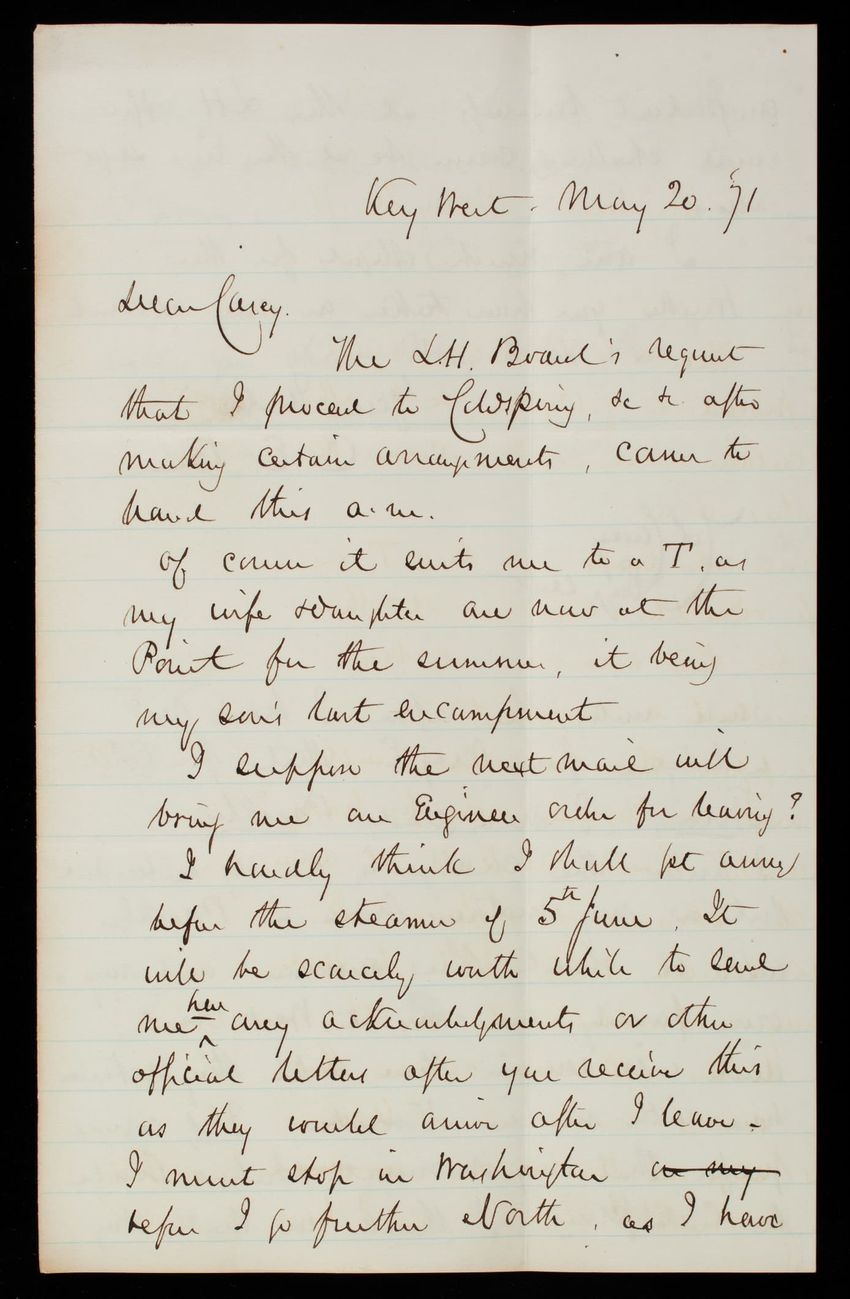 Key West. May 20. '71
Dear Casey.
The L.H. Board's request
that I proceed to Coldspring, &c &c after
making certain arrangements, came to
hand this a.m.
Of course it suits me to a T. as
my wife & daughter are now at the
Point for the summer, it being
my son's last encampment
I suppose the next mail will
bring me an Engineer order for leaving?
I hardly think I shall get away
before the steamer of 5th June. It
will be scarcely worth while to send
me here any acknowledgments or other
official letters after you receive this
as they would arrive after I leave -
I must stop in Washington on my
before I go further North, as I have